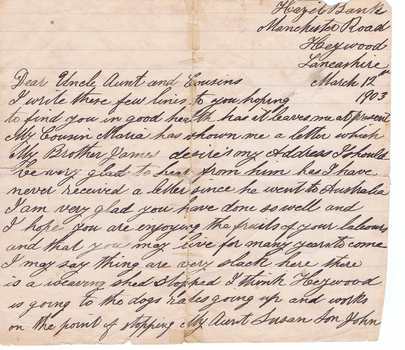 Hazel Bank
Manchester Road
Heywood
Lancashire
Dear Uncle Aunt and Cousins March 12th
I write these few lines to you hoping 1903
to find you in good health has it leaves me at present
My Cousin Maria has shown me a letter which
My Brother James desire's my Address I should
be very glad to hear from him has I have
never received a letter since he went to Australia
I am very glad you have done so well and
I hope you are enjoying the fruits of your labour
and that you may live for many years to come
I may say thing are very slack here there
is a weaving shed stopped I think Heywood
is going to the dogs rates going up and works
on the point of stopping My Aunt Susan Son John